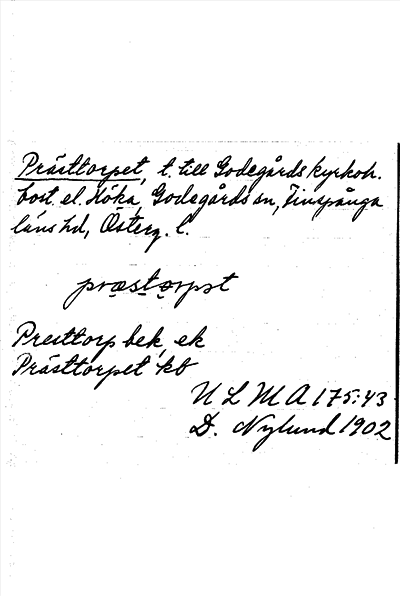 Prästtorpet, t. till Godegårds kyrkoh.
bost. el. Höka, Godegårds sn, Finspånga
läns hd, Österg. l.
præstorpət
Presttorp bek, ek
Prästtorpet kb
ULMA 175:43.
D. Nylund 1902